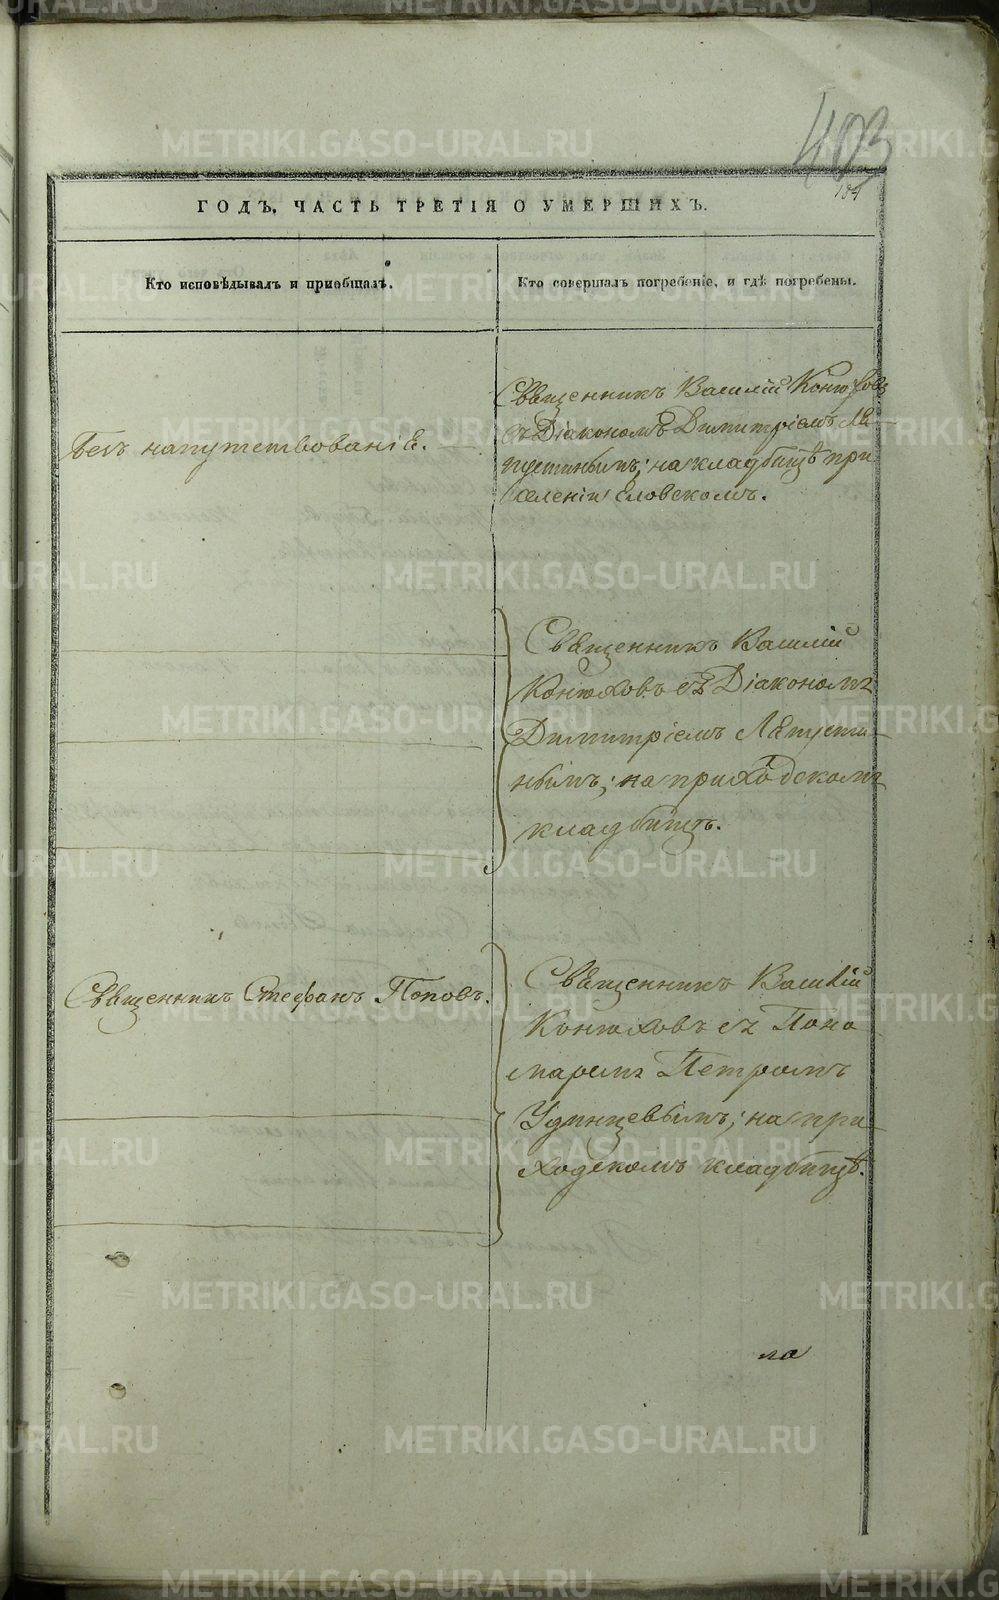 403
184
ГОДЪ, ЧАСТЬ ТРЕТІЯ О УМЕРШИХЪ.
Кто исповѣдывалъ и пріобщалъ.
Кто совершалъ погребеніе, и гдѣ погребены.
Безъ напутствованіе.
Священникъ Василій Конюховъ
съ Діакономъ Димитріемъ Ля-
пустинымъ; на кладбищѣ при
селеніи Еловскомъ.
Священникъ Василій
Конюховъ съ Діакономъ
Димитріемъ Ляпусти-
нымъ; на приходскомъ
кладбищѣ.
Священникъ Стефанъ Поповъ.
Священникъ Василій
Конюховъ съ Поно
маремъ Петромъ
Удинцевымъ; на при-
ходскомъ кладбищѣ.
ла
METRIKI.GASO-URAL.RU